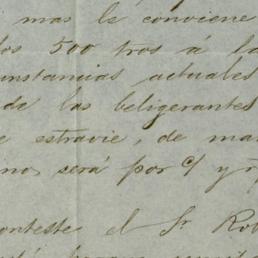 mas le conviene
los 500 tros á la
unstancias actuales
da las beligerantes
e estravie, de ma
no será por c/ y r
onteste el Sr Rob